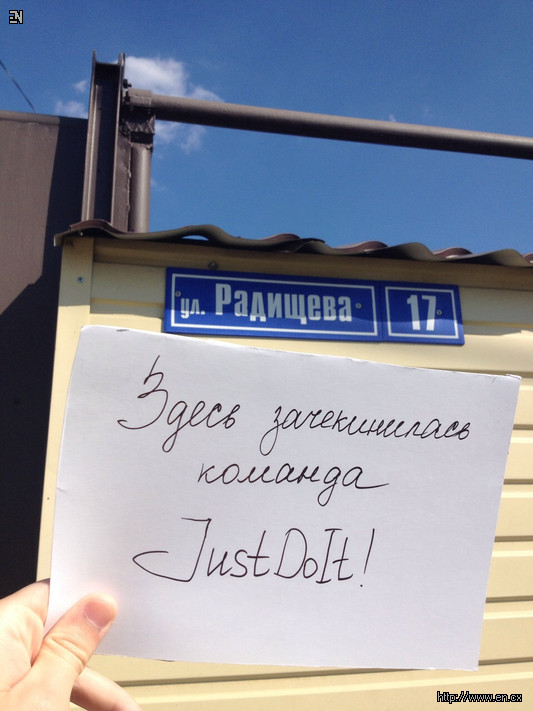 EN
ул. Радищева 17
Здесь зачекинилась
команда
JustDoIt!
http://www.en.cx